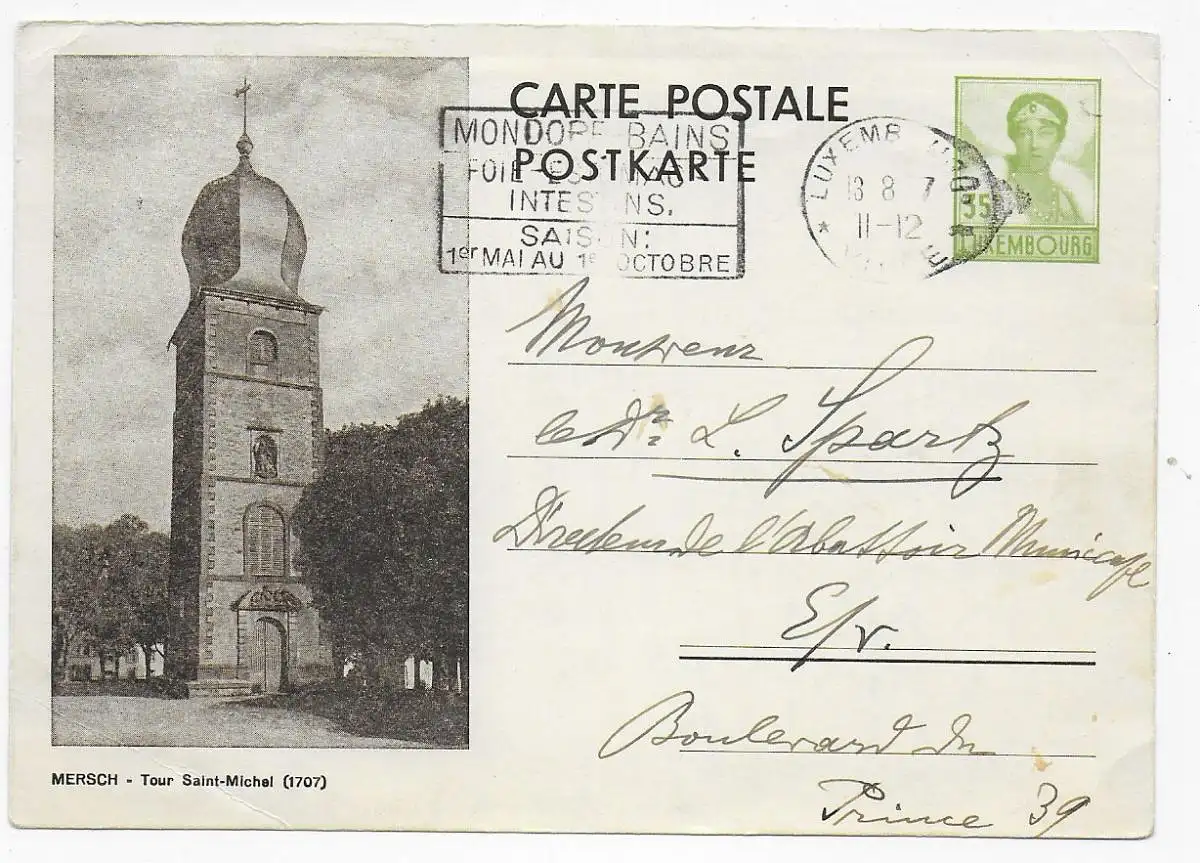 CARTE POSTALE
POSTKARTE
MONDORF-BAINS
FOIE-ESTOMAC
INTESTINS.
SAISON:
1er MAI AU 1er OCTOBRE
LUXEMBOURG
13 8 7
11-12
35
LUXEMBOURG
Monsieur
le Dr. L. Spartz
Directeur de l'Abattoir Municipal
E/v.
Boulevard du
Prince 39
MERSCH - Tour Saint-Michel (1707)